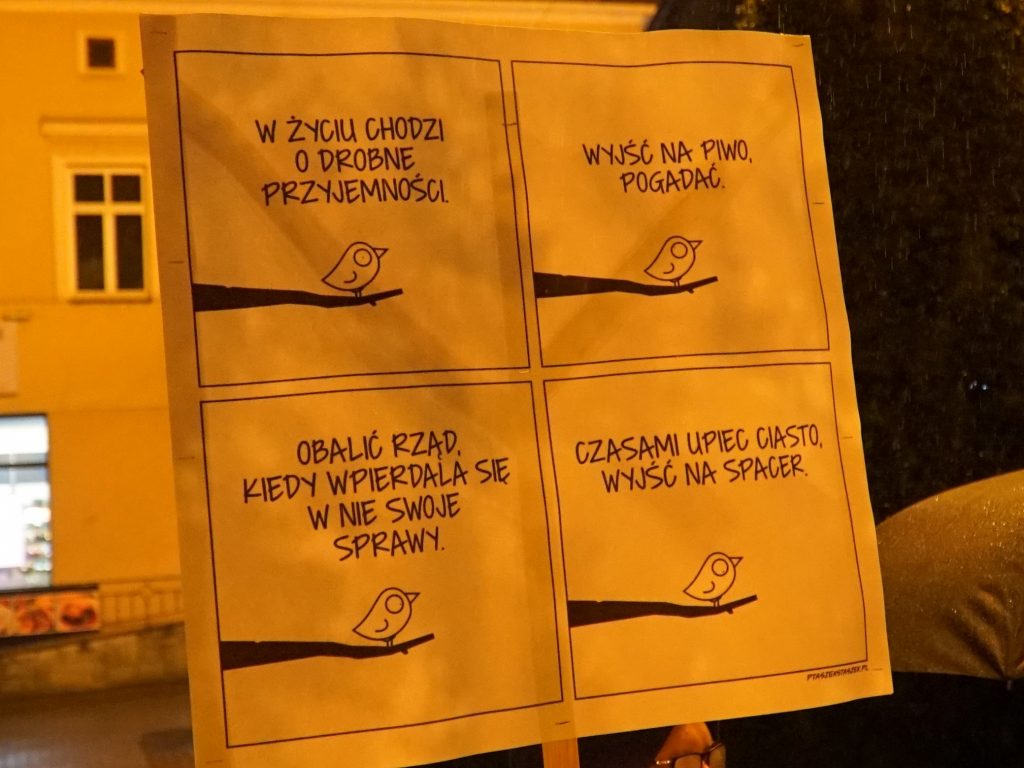 W ŻYCIU CHODZI
O DROBNE
PRZYJEMNOŚCI.
WYJŚĆ NA PIWO,
POGADAĆ.
OBALIĆ RZĄD,
KIEDY WPIERDALA SIĘ
W NIE SWOJE
SPRAWY.
CZASAMI UPIEC CIASTO,
WYJŚĆ NA SPACER.
PTASZEKSTASZEK.PL